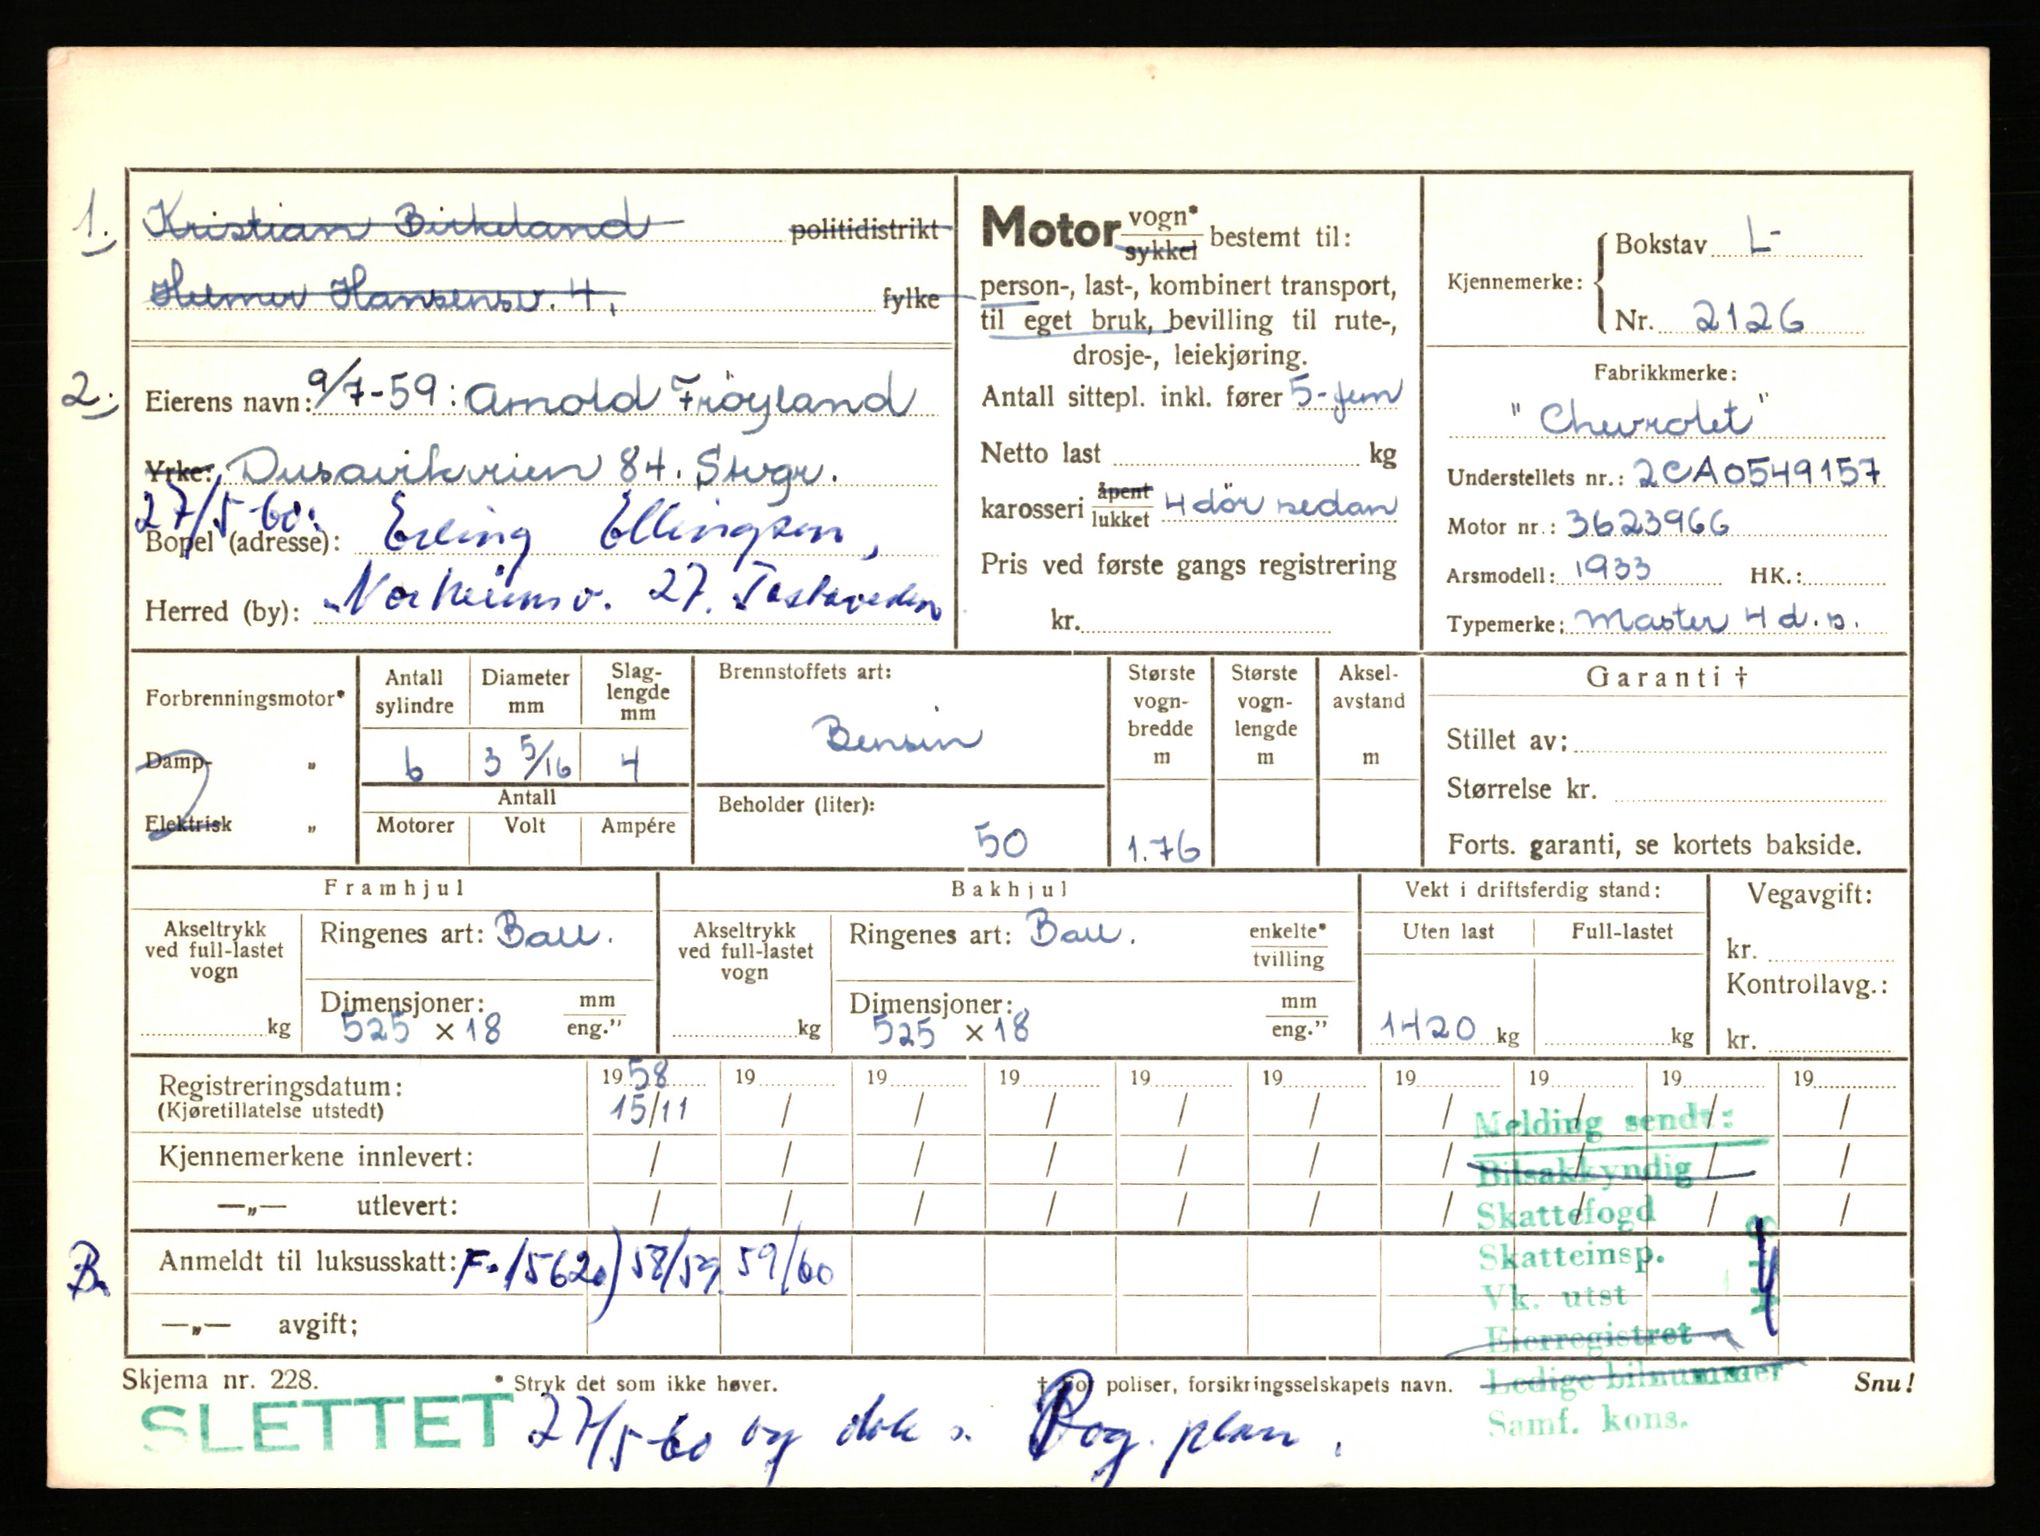 1. Kristian Birkeland politidistrikt
Helmer Hansensv. 4, fylke
2. Eierens navn: 9/7-59: Arnold Fröyland
Yrke: Dusavikveien 84. Stvgr.
27/5-60: Erling Ellingsen,
Bopel (adresse):
Herred (by): Norheimsv. 27. Tastaveden
Motor vogn* / sykkel bestemt til:
person-, last-, kombinert transport,
til eget bruk, bevilling til rute-,
drosje-, leiekjøring.
Antall sittepl. inkl. fører 5-fem
Netto last kg
karosseri åpent / lukket 4 dör sedan
Pris ved første gangs registrering
kr.
Kjennemerke: Bokstav L-
Nr. 2126
Fabrikkmerke:
"Chevrolet"
Understellets nr.: 2CA0549157
Motor nr.: 3623966
Arsmodell: 1933 HK.:
Typemerke: Master 4 d.s.
Forbrenningsmotor*
Damp- „
Elektrisk „
Antall sylindre
6
Diameter mm
3 5/16
Slag-lengde mm
4
Antall
Motorer Volt Ampére
Brennstoffets art:
Bensin
Beholder (liter):
50
Største vogn-bredde m
1.76
Største vogn-lengde m
Aksel-avstand m
Garanti †
Stillet av:
Størrelse kr.
Forts. garanti, se kortets bakside.
Framhjul
Akseltrykk ved full-lastet vogn
kg
Ringenes art: Ball.
Dimensjoner: mm / eng."
525 x 18
Bakhjul
Akseltrykk ved full-lastet vogn
kg
Ringenes art: Ball. enkelte* / tvilling
Dimensjoner: mm / eng."
525 x 18
Vekt i driftsferdig stand:
Uten last Full-lastet
1420 kg kg
Vegavgift:
kr.
Kontrollavg.:
kr.
Registreringsdatum: 1958 19 19 19 19 19 19 19 19 19
(Kjøretillatelse utstedt) 15/11 / / / / / / / / /
Kjennemerkene innlevert: / / / / / / / / / /
—„— utlevert: / / / / / / / / / /
Anmeldt til luksusskatt: F-15620) 58/59. 59/60
—„— avgift;
Melding sendt:
Bilsakkyndig
Skattefogd
Skatteinsp.
Vk. utst
Eierregistret
Ledige bilnummer
Samf. kons.
Skjema nr. 228. * Stryk det som ikke høver. † For poliser, forsikringsselskapets navn. Snu!
SLETTET 27/5-60 og dek s. Rog. plan.